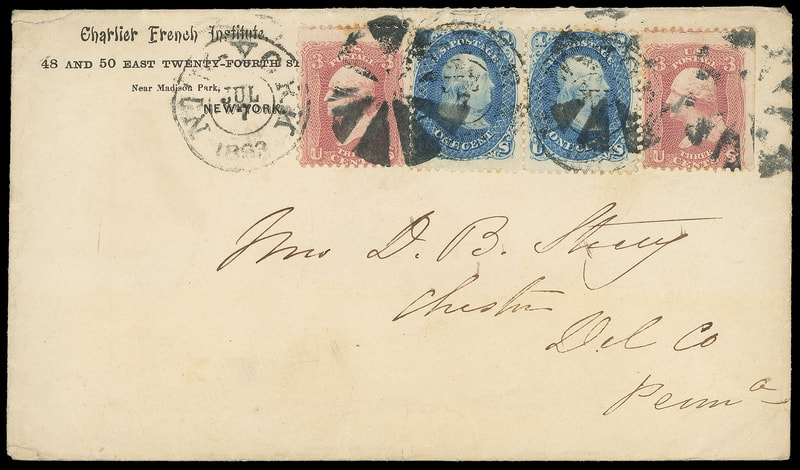 Charlier French Institute
48 AND 50 EAST TWENTY-FOURTH ST
Near Madison Park,
NEW-YORK.
NEW-YORK
JUL
7
1863
3 U.S. POSTAGE 3
U THREE CENTS S
1 U.S. POSTAGE 1
U ONE CENT S
1 U.S. POSTAGE 1
U ONE CENT S
3 3
U THREE CENTS S
D. B. Stacy
Chester
Del Co
Penna